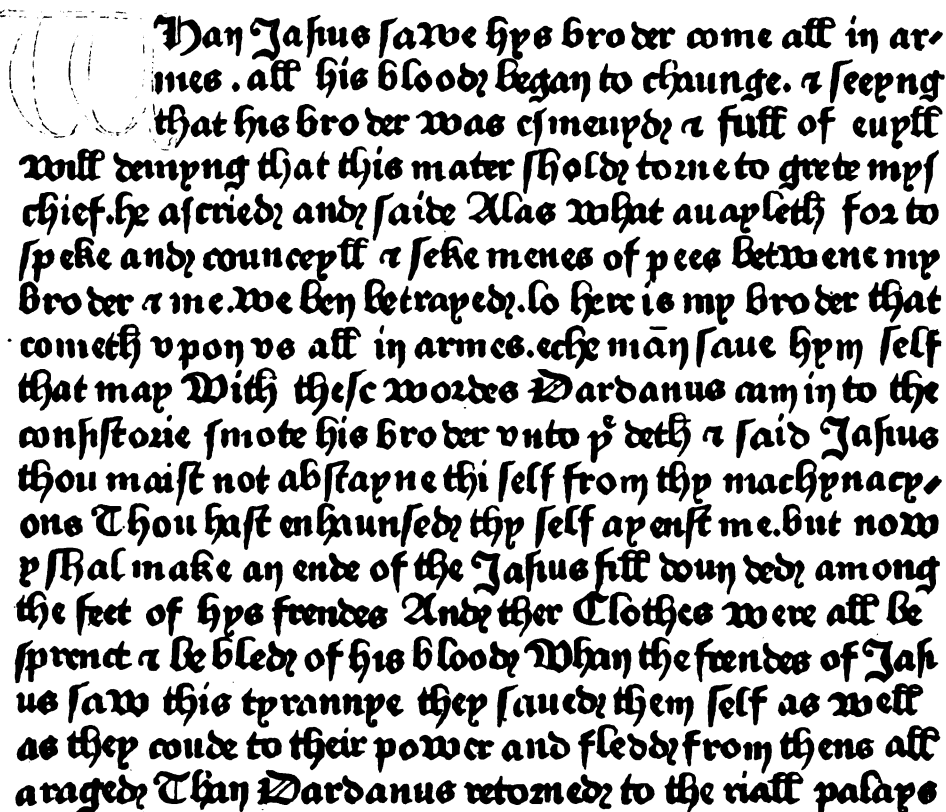 WHan Jasius sawe hys broder come all in ar-
mes . all his blood began to chaunge. & seeyng
that his broder was esmeuyd & full of euyll
will demyng that this mater shold torne to grete mys
chief.he ascried and saide Alas what auayleth for to
speke and counceyll & seke menes of pees betwene my
broder & me.We ben betrayed.lo here is my broder that
cometh vpon vs all in armes.eche mān saue hym self
that may With these wordes Dardanus cam in to the
consistorie smote his broder vnto yͤ deth & said Jasius
thou maist not abstayne thi self from thy machynacy-
ons Thou hast enhaunsed thy self ayenst me.but now
y shal make an ende of the Jasius fill doun ded among
the feet of hys frendes And ther Clothes were all be
sprenct & be bled of his blood Whan the frendes of Jasi
us saw this tyrannye they saued them self as well
as they coude to their power and fledd from thens all
araged Than Dardanus retorned to the riall palays